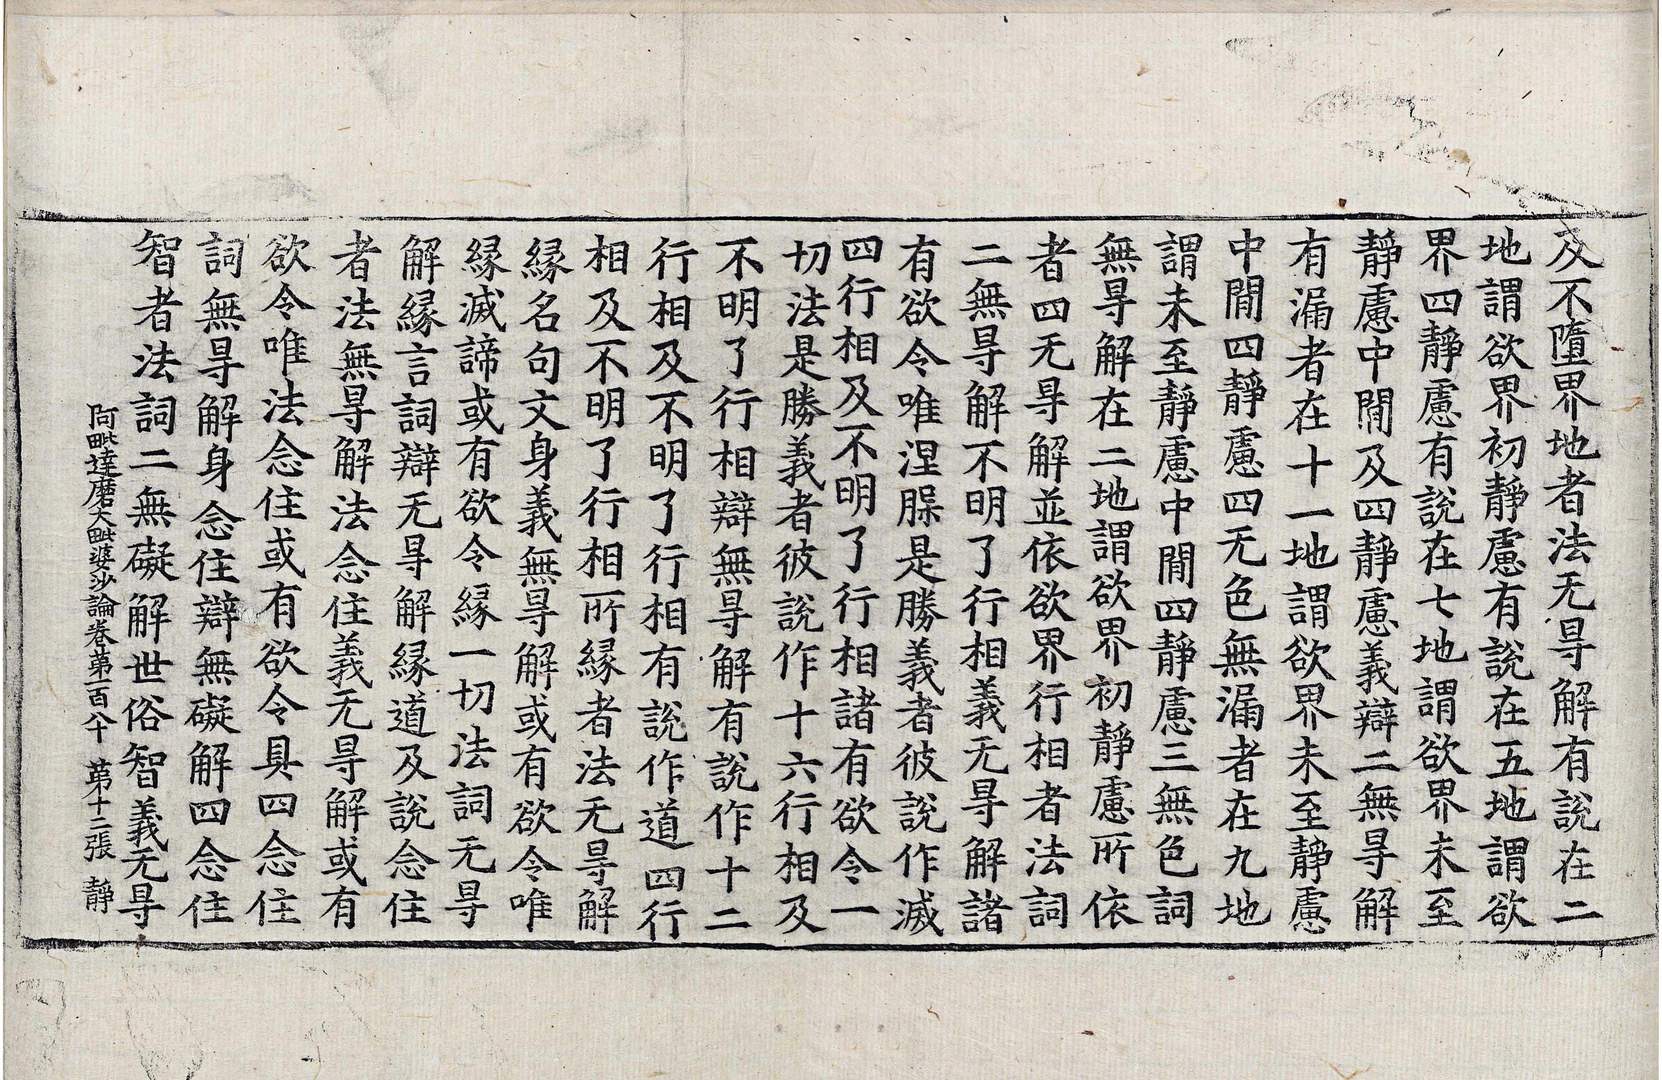 及不墮界地者法无㝵解有說在二
地謂欲界初靜慮有說在五地謂欲
界四靜慮有說在七地謂欲界未至
靜慮中閒及四靜慮義辯二無㝵解
有漏者在十一地謂欲界未至靜慮
中閒四靜慮四无色無漏者在九地
謂未至靜慮中閒四靜慮三無色詞
無㝵解在二地謂欲界初靜慮所依
者四无㝵解並依欲界行相者法詞
二無㝵解不明了行相義无㝵解諸
有欲令唯涅槃是勝義者彼說作滅
四行相及不明了行相諸有欲令一
切法是勝義者彼說作十六行相及
不明了行相辯無㝵解有說作十二
行相及不明了行相有說作道四行
相及不明了行相所緣者法无㝵解
緣名句文身義無㝵解或有欲令唯
緣滅諦或有欲令緣一切法詞无㝵
解緣言詞辯无㝵解緣道及說念住
者法無㝵解法念住義无㝵解或有
欲令唯法念住或有欲令具四念住
詞無㝵解身念住辯無礙解四念住
智者法詞二無礙解世俗智義无㝵
阿毗達磨大毗婆沙論卷第一百八十 第十二張 靜